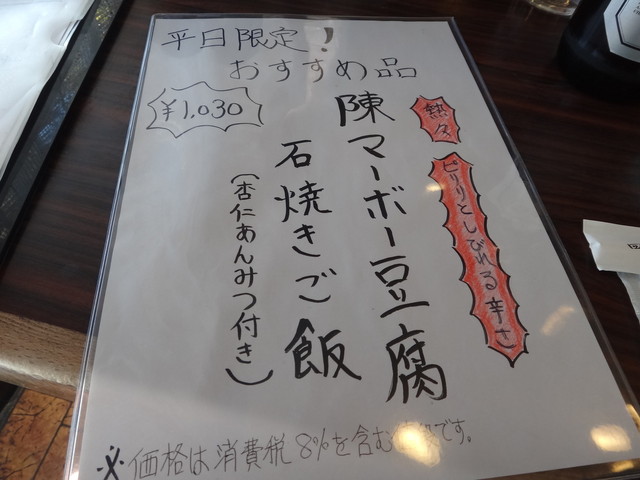 平日限定!
おすすめ品
¥1,030
熱々
ピリリとしびれる辛さ
陳マーボー豆腐
石焼きご飯
(杏仁あんみつ付き)
※価格は消費税8%を含む です。